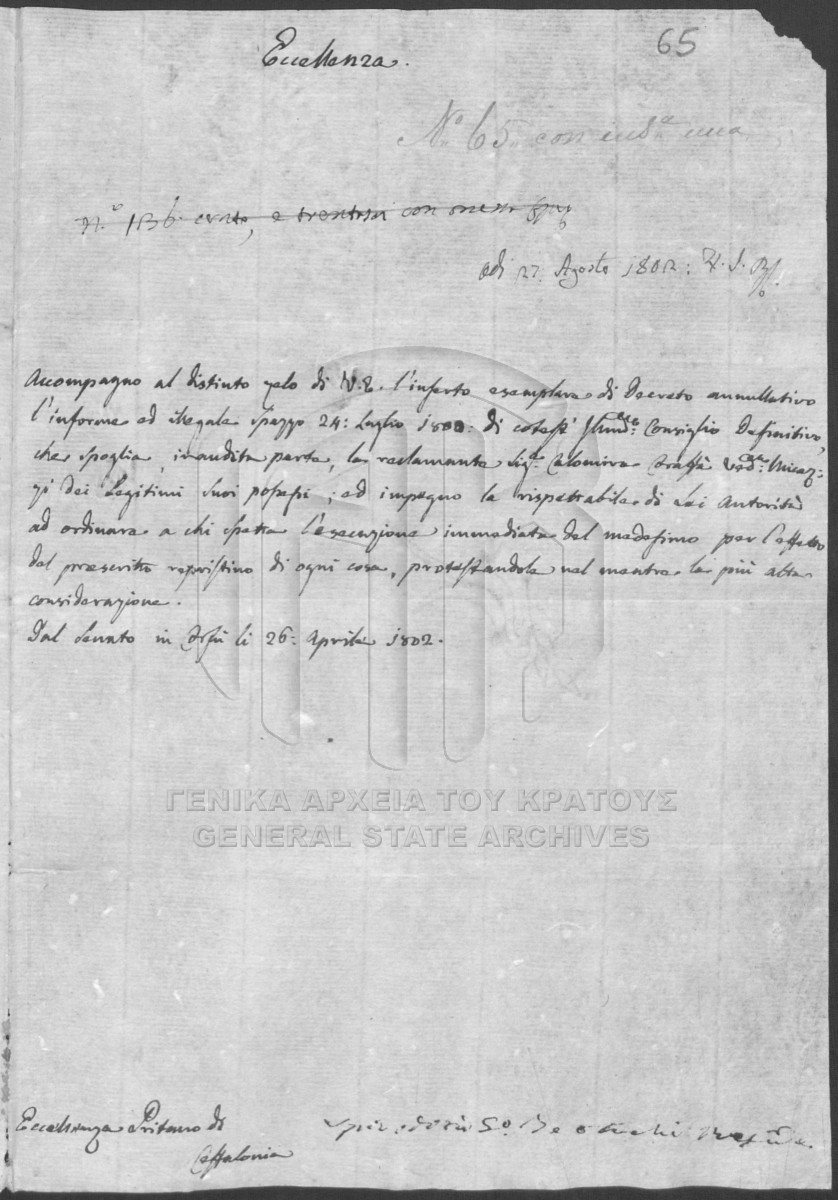 65
Eccellenza.
N.º 65 con ind.ª una
N.º 136. cento, e trentasei con
adi 27. Agosto 1802:
Accompagno al distinto zelo di V.E. l'inserto esemplare di Decreto annullativo
l'informe ed illegale spazzo 24: Luglio 1800: di cotest' Consiglio Definitivo,
che spoglia, inaudita parte, la reclamante Sig.ª Calomira
zi dei Legitimi suoi possessi; ed impegno la rispettabile di Lei autorità
ad ordinare a chi spetta l'esecuzione immediata del medesimo per l'effetto
del prescritto repristino di ogni cosa, protestandole nel mentre la più alta
considerazione.
Dal Senato in Corfù li 26: Aprile 1802.
ΓΕΝΙΚΑ ΑΡΧΕΙΑ ΤΟΥ ΚΡΑΤΟΥΣ
GENERAL STATE ARCHIVES
Eccellenza Pritano di
Ceffalonia